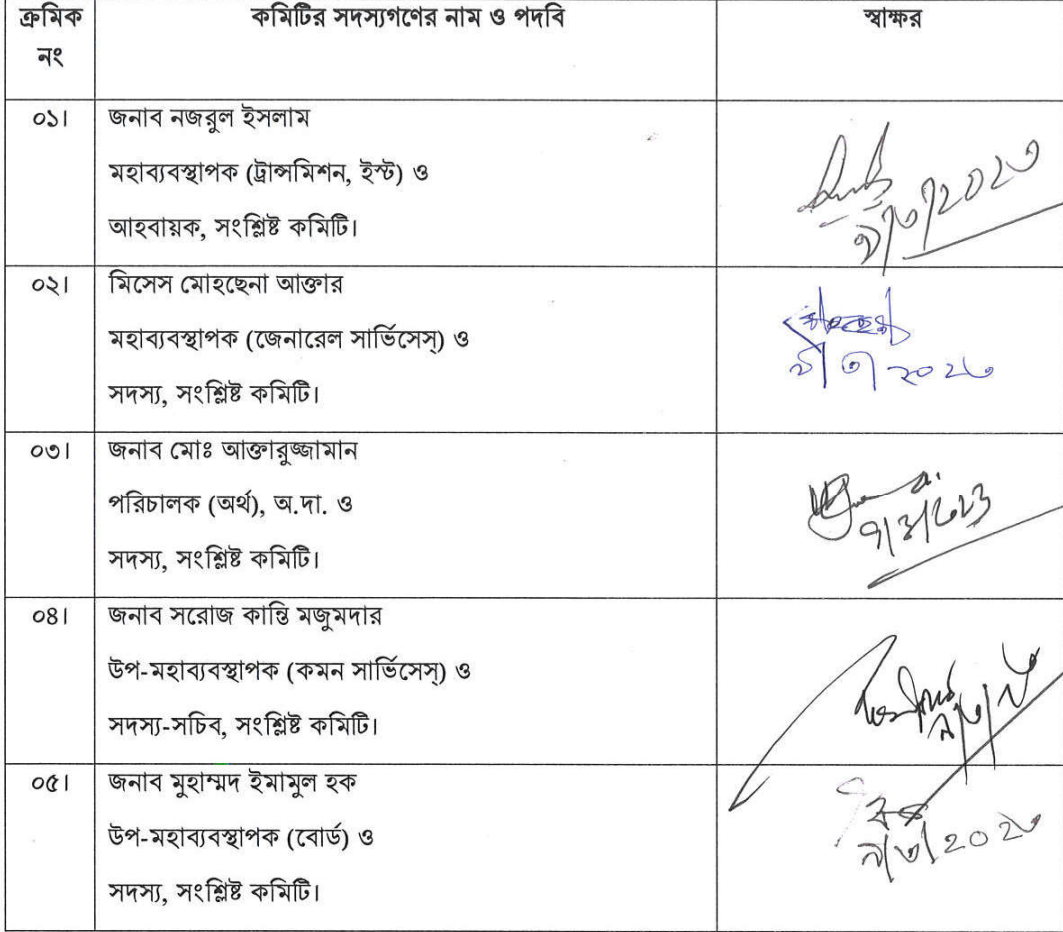 ক্রমিক নং
কমিটির সদস্যগণের নাম ও পদবি
স্বাক্ষর
০১।
জনাব নজরুল ইসলাম
মহাব্যবস্থাপক (ট্রান্সমিশন, ইস্ট) ও
আহবায়ক, সংশ্লিষ্ট কমিটি।
০২।
মিসেস মোহছেনা আক্তার
মহাব্যবস্থাপক (জেনারেল সার্ভিসেস্) ও
সদস্য, সংশ্লিষ্ট কমিটি।
০৩।
জনাব মোঃ আক্তারুজ্জামান
পরিচালক (অর্থ), অ.দা. ও
সদস্য, সংশ্লিষ্ট কমিটি।
০৪।
জনাব সরোজ কান্তি মজুমদার
উপ-মহাব্যবস্থাপক (কমন সার্ভিসেস্) ও
সদস্য-সচিব, সংশ্লিষ্ট কমিটি।
০৫।
জনাব মুহাম্মদ ইমামুল হক
উপ-মহাব্যবস্থাপক (বোর্ড) ও
সদস্য, সংশ্লিষ্ট কমিটি।